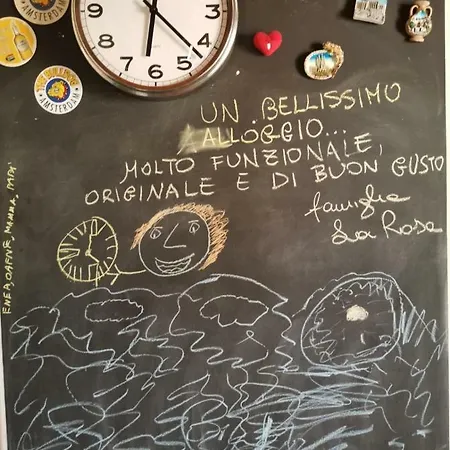 12
1
2
3
4
5
6
7
8
9
10
THE BULLDOG
AMSTERDAM
AMSTERDAM
UN BELLISSIMO
ALLOGGIO...
MOLTO FUNZIONALE,
ORIGINALE E DI BUON GUSTO
famiglia
La Rosa
ENEA, DAFNE, MAMMA, PAPA'